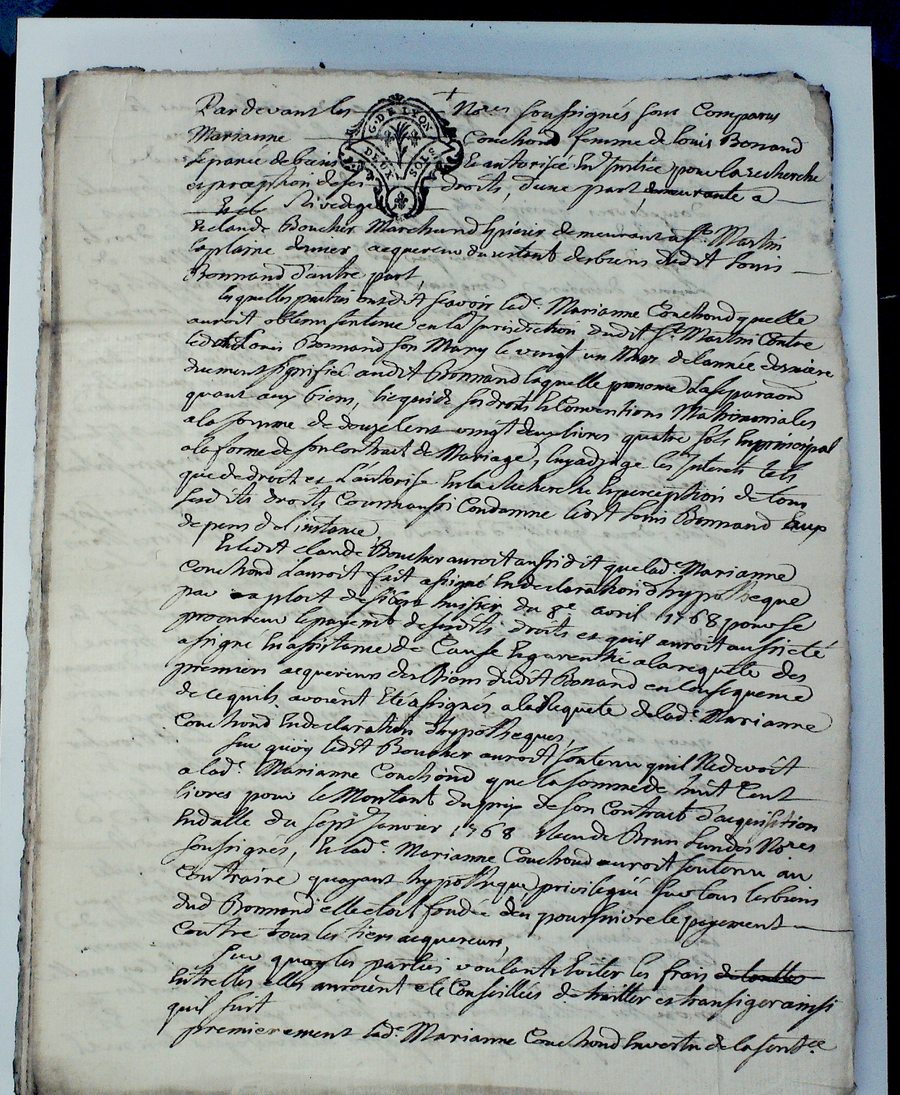 Par devant les Nores soussignés sont Comparus
Marianne Couchond femme de Louis Bonnand
separée de biens et autorisée en Justice pour la recherche
et perception de ses droits, d'une part, demeurante a
Rivedegier
G. DE LYON
DEUX SOLS
Et claude Boucher Marchand epicier demeurant a St. Martin
laplaine dernier acquereur du restant des biens dudit Louis
Bonnand d'autre part,
lesquelles parties ont dit savoir lade. Marianne Couchond quelle
auroit obtenu sentence en la Jurisdiction dudit St. Martin Contre
ledit Louis Bonnand son Mary le vingt un Mars de l'année derniere
duement signifiée audit Bonnand laquelle prononce la separaon
quant aux biens, liquide ses droits et Conventions Matrimoniales
a la somme de douze Cent vingt deux livres quatre sols en principal
a la forme de son Contrat de Mariage, luy adjuge les Interets tels
que de droit et l'autorise en la Recherche et perception de tous
sesdits droits Comm'aussi Condamne ledit Louis Bonnand aux
depens de l'instance
Et ledit claude Boucher auroit aussi dit que lade. Marianne
Couchond l'auroit fait assigner en declaration d'hypotheque
par exploit de huissier du 8e. avril 1768 pour se
procurer le payemt. de sesdits droits et quil auroit aussi eté
assigné en assistance de Cause et garentie a la requette des
premiers acquereurs des Biens dudit Bonand en Consequence
de ce quils avoient eté assignés a la Requete de lade. Marianne
Couchond en declaration d'hypotheques,
sur quoy ledit Boucher auroit soutenu quil ne devoit
a lade. Marianne Couchond que la somme de huit Cent
livres pour le Montant du prix de son Contrat d'acquisition
en datte du sept Janvier 1768 Recu de Brun l'un des Nores
soussignés, et lade. Marianne Couchond auroit soutenu au
Contraire quayant hypotheque privilegiée sur tous les biens
dud Bonnand elle etoit fondée d'en poursuivre le payement
Contre tous les tiers acquereurs,
sur quoy les parties voulant Eviter les frais
entrelles elles auroient eté Conseillées de traitter et transiger ainsi
quil suit
premierement lade. Marianne Couchond en vertu de la sentce